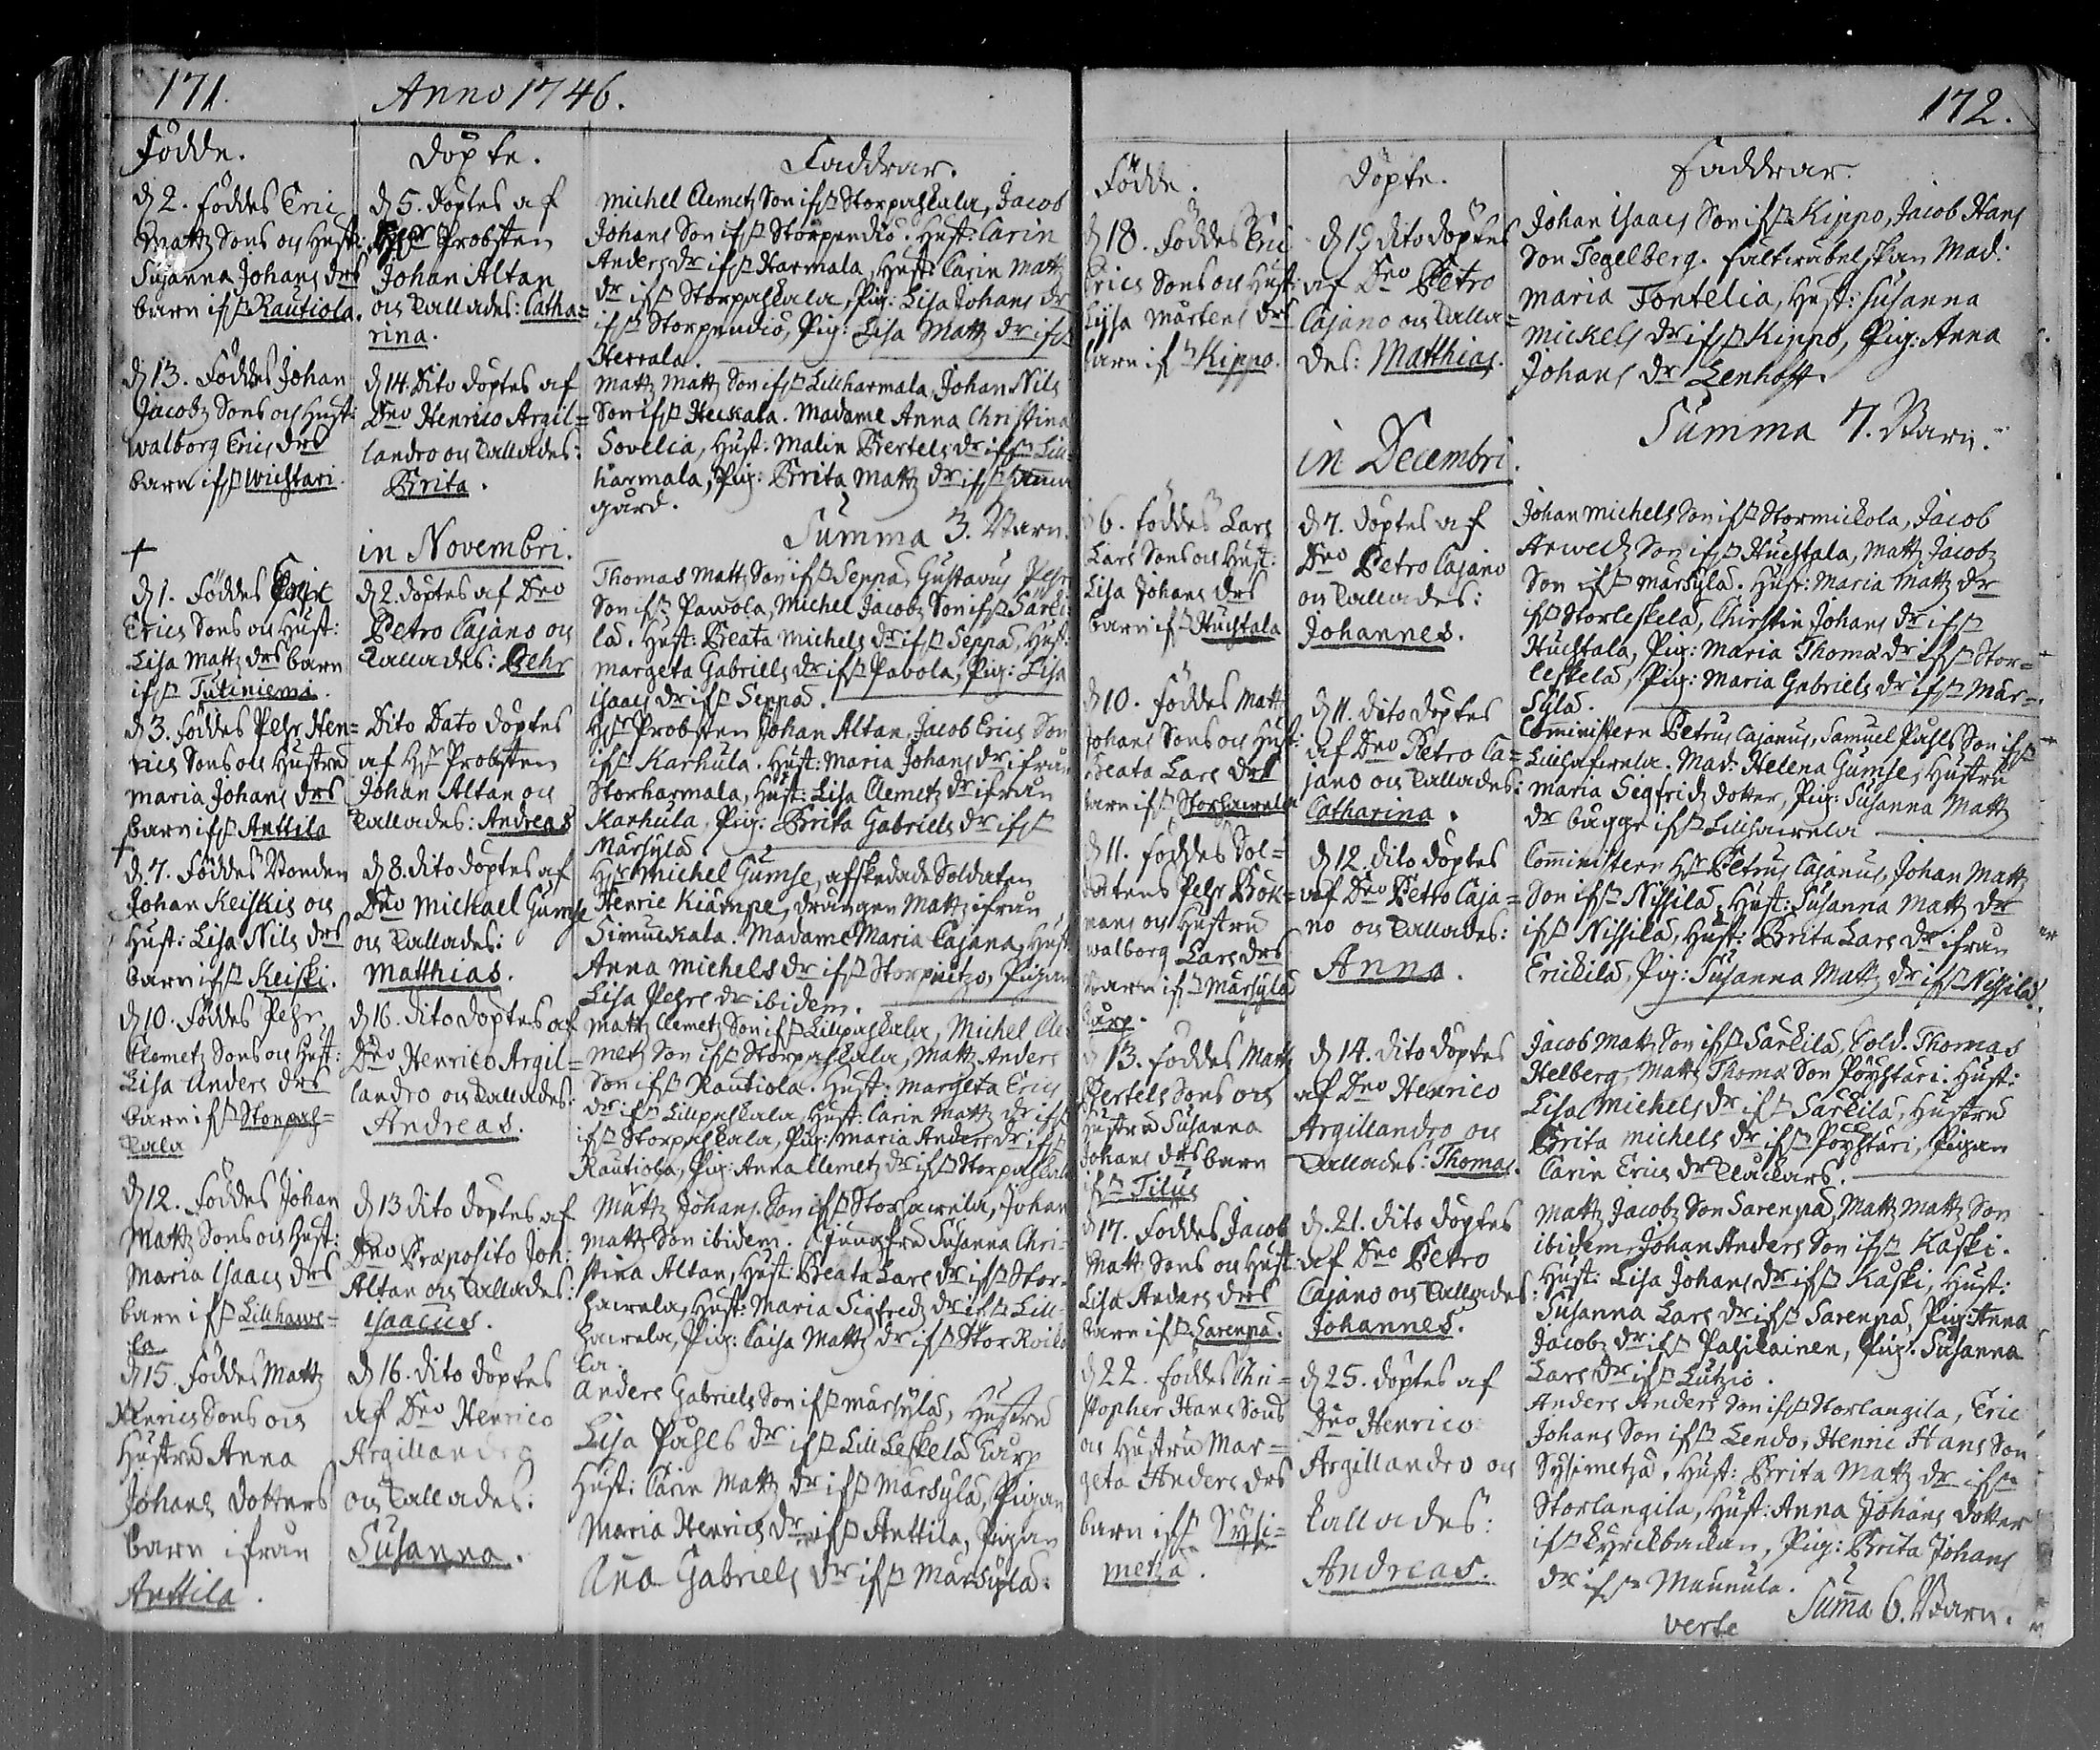 171.
Anno 1746.
Födde.
Döpte.
Faddrar.
d 2. föddes Eric
Mattz Sons och Hust:
Susanna Johans drs
barn ifrn Rautiola.
d 5. döptes af
Hr Probsten
Johan Altan
och kallades: Catha=
rina.
Michel Clemetz Son ifrn Storpaskala, Jacob
Johans Son ifrn Storpendiö. Hust: Carin
Anders dr ifrn Harmala, Hust: Carin Mattz
dr ifrn Storpaskala, Pig: Lisa Johans dr
ifrn Storpendiö, Pig: Lisa Mattz dr ifrn
Herrala.
d 13. Föddes Johan
Jacobz Sons och Hust:
Walborg Erics drs
barn ifrn Wichtari.
d 14. Dito döptes af
Dno Henrico Argil=
landro och kallades:
Brita.
Mattz Mattz Son ifrn Lillharmala, Johan Nils
Son ifrn Heickala. Madame Anna Christina
Sovelia, Hust: Malin Bertels dr ifrn Lill=
harmala, Pig: Brita Mattz dr ifrn samma
gård.
Summa 3. Barn.
in Novembri.
+
d 1. Föddes
Erics Sons och Hust:
Lisa Mattz drs barn
ifrn Tutiniemi.
d 2. döptes af Dno
Petro Cajano och
kallades: Pehr
Thomas Mattz Son ifrn Seppä, Gustavus Pehr
Son ifrn Pawola, Michel Jacobz Son ifrn Särki
lä. Hust: Beata Michels dr ifrn Seppä, Hust:
Margeta Gabriels dr ifrn Pavola, Pig: Lisa
Isaacs dr ifrn Seppä.
d 3. Föddes Pehr Hen=
rics Sons och Hustru
Maria Johans drs
barn ifrn Anttila
Dito Dato döptes
af Hr Probsten
Johan Altan och
kallades: Andreas
Hr Probsten Johan Altan, Jacob Erics Son
ifrn Karhula. Hust: Maria Johans dr ifrån
Storharmala, Hust: Lisa Clemetz dr ifrån
Karhula, Pig: Brita Gabriels dr ifrn
Märsylä
+
d 7. Föddes Bonden
Johan Keiskis och
Hust: Lisa Nils drs
barn ifrn Keiski.
d 8. dito döptes af
Dno Michael Gumse
och kallades:
Matthias.
Hr Michel Gumse, afskedade Soldaten
Henric Kiämpe, drängen Mattz ifrån
Simuckala. Madame Maria Cajana, Hust
Anna Michels dr ifrn Storpeitzo, Pigan
Lisa Pehrs dr ibidem.
d 10. Föddes Pehr
Clemetz Sons och Hust:
Lisa Anders drs
barn ifrn Storpas=
kala
d 16. dito döptes af
Dno Henrico Argil=
landro och kallades:
Andreas.
Mattz Clemetz Son ifrn Lillpaskala, Michel Cle
metz Son ifrn Storpaskala, Mattz Anders
Son ifrn Rautiola. Hust: Margeta Erics
dr ifrn Lillpaskala, Hust: Carin Mattz dr ifrn
ifrn Storpaskala, Pig: Maria Anders dr ifrn
Rautiola, Pig: Anna Clemetz dr ifrn Storpaskala
d 12. Föddes Johan
Mattz Sons och Hust:
Maria Isaacs drs
barn ifrn Lillhawe=
la
d 13 dito döptes af
Dno Præposito Joh:
Altan och kallades:
Isaacus.
Mattz Johans Son ifrn Storhawela, Johan
Mattz Son ibidem. Jungfru Susanna Chri=
stina Altan, Hust: Beata Lars dr ifrn Stor=
hawela, Hust: Maria Sigfredz dr ifrn Lill=
hawela, Pig: Caisa Mattz dr ifrn Stor Roiko
la.
d 15. Föddes Mattz
Henrics Sons och
Hustru Anna
Johans Dotters
barn ifrån
Anttila.
d 16. dito döptes
af Dno Henrico
Argillandro
och kallades:
Susanna.
Anders Gabriels Son ifrn Märsylä, Hustru
Lisa Påhls dr ifrn Lill Leskelä Karp
Hust: Carin Mattz dr ifrn Märsylä, Pigan
Maria Henrics dr ifrn Anttila, Pigan
Ana Gabriels dr ifrn Märsylä.
172.
Födde.
Döpte.
Faddrar.
d 18. Föddes Eric
Erics Sons och Hust:
Lisa Mårtens drs
barn ifrn Kippo.
d 19 dito döptes
af Dno Petro
Cajano och kalla=
des: Matthias.
Johan Isaacs Son ifrn Kippo, Jacob Hans
Son Tegelberg. Fältwäbelskan Mad:
Maria Fontelia, Hust: Susanna
Mickels dr ifrn Kippo, Pig: Anna
Johans dr Lenhoft.
Summa 7. Barn.
in Decembri.
d 6. föddes Lars
Lars Sons och Hust:
Lisa Johans drs
barn ifrn Huchtala
d 7. döptes af
Dno Petro Cajano
och kallades:
Johannes.
Johan Michels Son ifrn Stormickola, Jacob
Arwedz Son ifrn Huchtala, Mattz Jacobz
Son ifrn Märsylä. Hust: Maria Mattz dr
ifrn Storleskelä, Christin Johans dr ifrn
Huchtala, Pig: Maria Thomæ dr ifrn Stor=
leskelä, Pig: Maria Gabriels dr ifrn Mär=
sylä.
d 10. Föddes Mattz
Johans Sons och Hust:
Beata Lars drs
barn ifrn Storhawela
d 11. dito döptes
af Dno Petro Ca=
jano och kallades:
Catharina.
Comministern Petrus Cajanus, Samuel Påhls Son ifrn
Lillhawela. Mad: Helena Gumse, Hustru
Maria Segfridz dotter, Pig: Susanna Mattz
dr Bagge ifrn Lillhawela
d 11. föddes Sol=
datens Pehr Bök=
mans och Hustru
Walborg Lars drs
barn ifrn Märsylä
Karp.
d 12. dito döptes
af Dno Petro Caja=
no och kallades:
Anna.
Comministern Hr Petrus Cajanus, Johan Mattz
Son ifrn Nissilä, Hust: Susanna Mattz dr
ifrn Nissilä, Hust: Brita Lars dr ifrån
Erickilä, Pig: Susanna Mattz dr ifrn Nissilä.
d 13. Föddes Mattz
Bertels Sons och
Hustru Susanna
Johans drs barn
ifrn Tilus
d 14. dito döptes
af Dno Henrico
Argillandro och
kallades: Thomas.
Jacob Mattz Son ifrn Särkilä, Sold. Thomas
Helberg, Mattz Thomæ Son Pöystäri. Hust:
Lisa Michels dr ifrn Särkilä, Hustru
Brita Michels dr ifrn Pöystäri, Pigan
Carin Erics dr Klåckars.
d 17. Föddes Jacob
Mattz Sons och Hust:
Lisa Anders drs
barn ifrn Sarenpä.
d. 21. dito döptes
af Dno Petro
Cajano och kallades:
Johannes.
Mattz Jacobz Son Sarenpä, Mattz Mattz Son
ibidem, Johan Anders Son ifrn Kaski.
Hust: Lisa Johans dr ifrn Kaski, Hust:
Susanna Lars dr ifrn Sarenpä, Pig: Anna
Jacobz dr ifrn Pasikainen, Pig: Susanna
Lars dr ifrn Lutzio.
d 22. föddes Chri=
stopher Hans Sons
och Hustru Mar=
geta Anders drs
barn ifrn Sysi=
metzä.
d 25. döptes af
Dno Henrico
Argillandro och
kallades:
Andreas.
Anders Anders Son ifrn Storlangila, Eric
Johans Son ifrn Lendo, Henric Hans Son
Sysimetzä, Hust: Brita Mattz dr ifrn
Storlangila, Hust: Anna Johans dotter
ifrn Kyrckbackan, Pig: Brita Johans
dr ifrn Maunula.
Suma 6. Barn.
verte